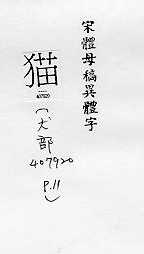 宋體母稿異體字
猫
(犬部
407920
P.11)